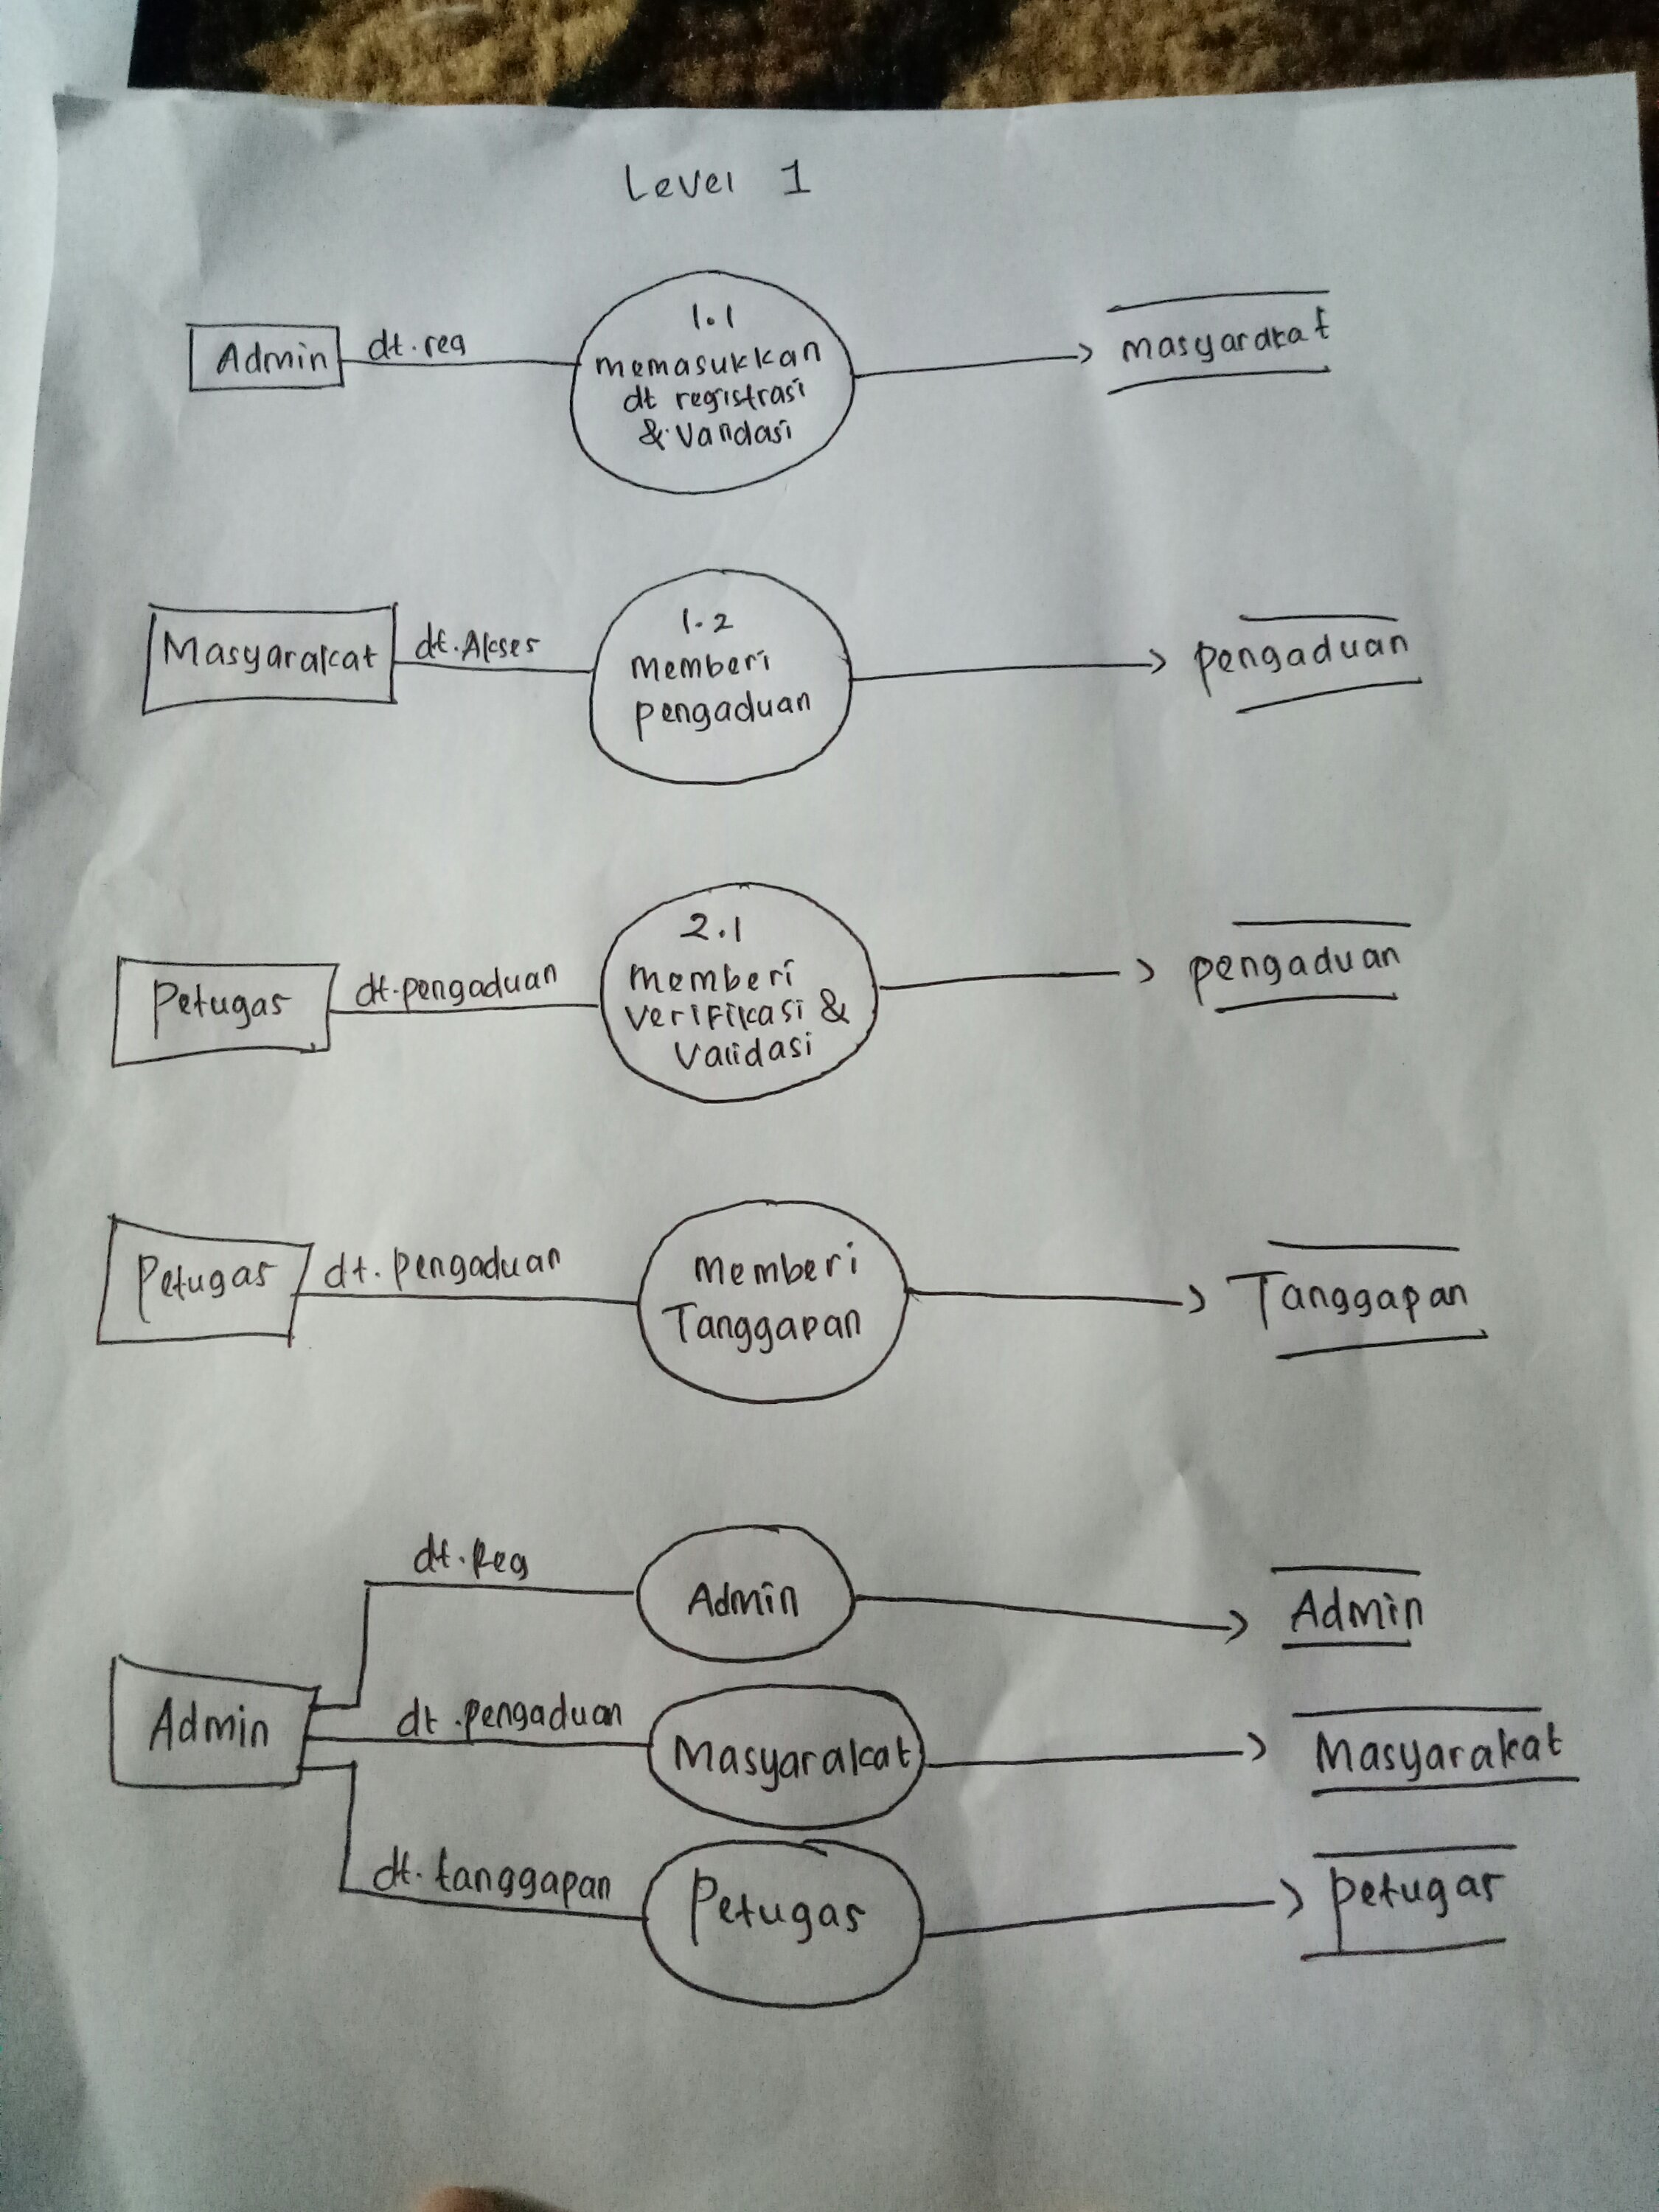 Level 1
Admin
dt.reg
1.1
memasukkan
dt registrasi
& Validasi
masyarakat
Masyarakat
dt.Akses
1.2
Memberi
pengaduan
pengaduan
Petugas
dt.pengaduan
2.1
Memberi
Verifikasi &
Validasi
pengaduan
Petugas
dt.pengaduan
Memberi
Tanggapan
Tanggapan
dt.Reg
Admin
Admin
Admin
dt.pengaduan
Masyarakat
Masyarakat
dt.tanggapan
Petugas
petugas